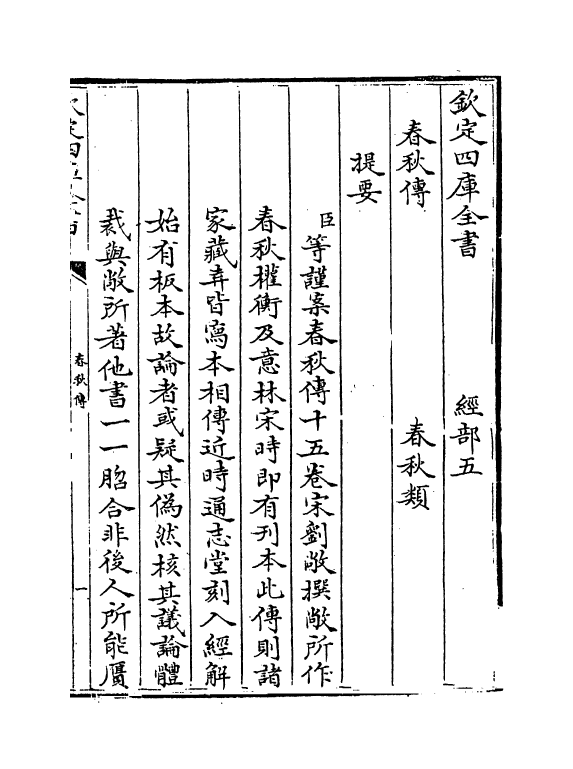 欽定四庫全書　經部五
春秋傳　春秋類
提要
臣等謹案春秋傳十五卷宋劉敞撰敞所作
春秋權衡及意林宋時即有刊本此傳則諸
家藏弆皆寫本相傳近時通志堂刻入經解
始有板本故論者或疑其僞然核其議論體
裁與敞所著他書一一脗合非後人所能贋
春秋傳
一